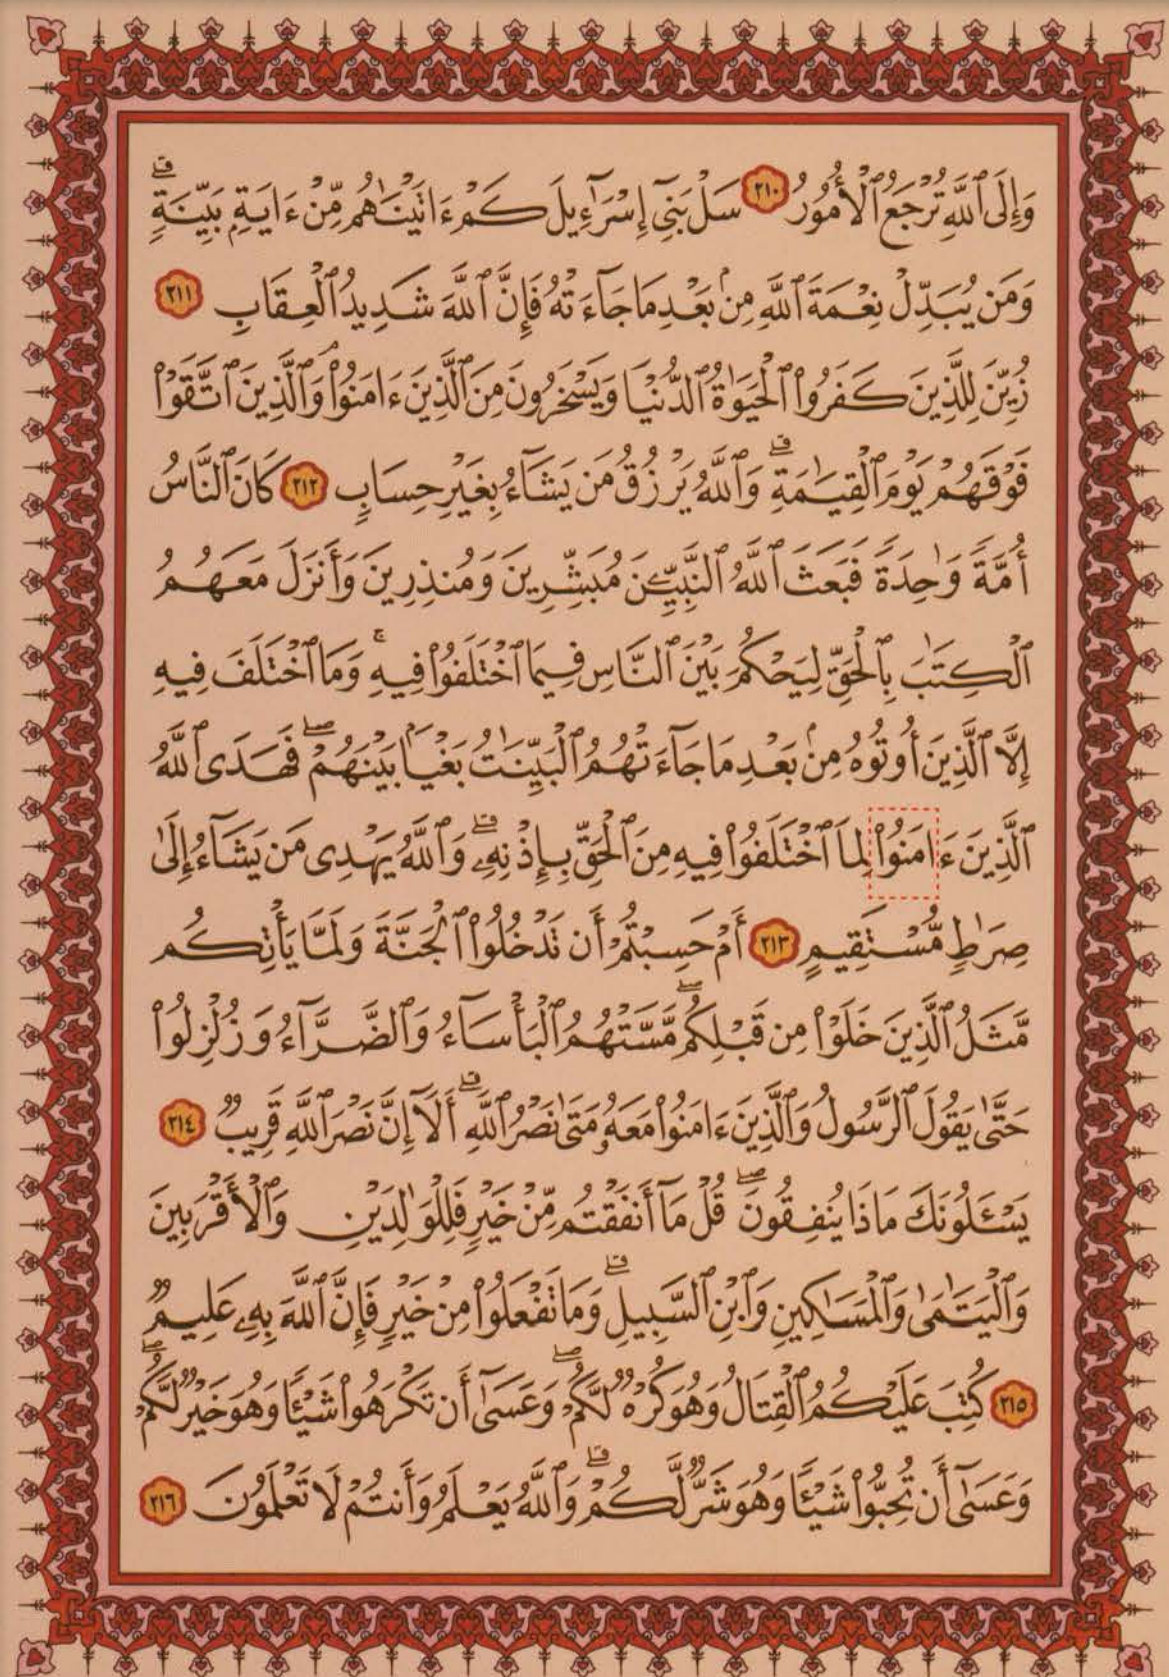 وَإِلَى ٱللَّهِ تُرْجَعُ ٱلْأُمُورُ ٢١٠ سَلْ بَنِىٓ إِسْرَٰٓءِيلَ كَمْ ءَاتَيْنَٰهُم مِّنْ ءَايَةٍۭ بَيِّنَةٍۗ
وَمَن يُبَدِّلْ نِعْمَةَ ٱللَّهِ مِنۢ بَعْدِ مَا جَآءَتْهُ فَإِنَّ ٱللَّهَ شَدِيدُ ٱلْعِقَابِ ٢١١
زُيِّنَ لِلَّذِينَ كَفَرُوا۟ ٱلْحَيَوٰةُ ٱلدُّنْيَا وَيَسْخَرُونَ مِنَ ٱلَّذِينَ ءَامَنُوا۟ۘ وَٱلَّذِينَ ٱتَّقَوْا۟
فَوْقَهُمْ يَوْمَ ٱلْقِيَٰمَةِۗ وَٱللَّهُ يَرْزُقُ مَن يَشَآءُ بِغَيْرِ حِسَابٍ ٢١٢ كَانَ ٱلنَّاسُ
أُمَّةً وَٰحِدَةً فَبَعَثَ ٱللَّهُ ٱلنَّبِيِّـۧنَ مُبَشِّرِينَ وَمُنذِرِينَ وَأَنزَلَ مَعَهُمُ
ٱلْكِتَٰبَ بِٱلْحَقِّ لِيَحْكُمَ بَيْنَ ٱلنَّاسِ فِيمَا ٱخْتَلَفُوا۟ فِيهِۚ وَمَا ٱخْتَلَفَ فِيهِ
إِلَّا ٱلَّذِينَ أُوتُوهُ مِنۢ بَعْدِ مَا جَآءَتْهُمُ ٱلْبَيِّنَٰتُ بَغْيًۢا بَيْنَهُمْۖ فَهَدَى ٱللَّهُ
ٱلَّذِينَ ءَامَنُوا۟ لِمَا ٱخْتَلَفُوا۟ فِيهِ مِنَ ٱلْحَقِّ بِإِذْنِهِۦۗ وَٱللَّهُ يَهْدِى مَن يَشَآءُ إِلَىٰ
صِرَٰطٍ مُّسْتَقِيمٍ ٢١٣ أَمْ حَسِبْتُمْ أَن تَدْخُلُوا۟ ٱلْجَنَّةَ وَلَمَّا يَأْتِكُم
مَّثَلُ ٱلَّذِينَ خَلَوْا۟ مِن قَبْلِكُمۖ مَّسَّتْهُمُ ٱلْبَأْسَآءُ وَٱلضَّرَّآءُ وَزُلْزِلُوا۟
حَتَّىٰ يَقُولَ ٱلرَّسُولُ وَٱلَّذِينَ ءَامَنُوا۟ مَعَهُۥ مَتَىٰ نَصْرُ ٱللَّهِۗ أَلَآ إِنَّ نَصْرَ ٱللَّهِ قَرِيبٌ ٢١٤
يَسْـَٔلُونَكَ مَاذَا يُنفِقُونَۖ قُلْ مَآ أَنفَقْتُم مِّنْ خَيْرٍ فَلِلْوَٰلِدَيْنِ وَٱلْأَقْرَبِينَ
وَٱلْيَتَٰمَىٰ وَٱلْمَسَٰكِينِ وَٱبْنِ ٱلسَّبِيلِۗ وَمَا تَفْعَلُوا۟ مِنْ خَيْرٍ فَإِنَّ ٱللَّهَ بِهِۦ عَلِيمٌ
٢١٥ كُتِبَ عَلَيْكُمُ ٱلْقِتَالُ وَهُوَ كُرْهٌ لَّكُمْۖ وَعَسَىٰٓ أَن تَكْرَهُوا۟ شَيْـًٔا وَهُوَ خَيْرٌ لَّكُمْۖ
وَعَسَىٰٓ أَن تُحِبُّوا۟ شَيْـًٔا وَهُوَ شَرٌّ لَّكُمْۗ وَٱللَّهُ يَعْلَمُ وَأَنتُمْ لَا تَعْلَمُونَ ٢١٦